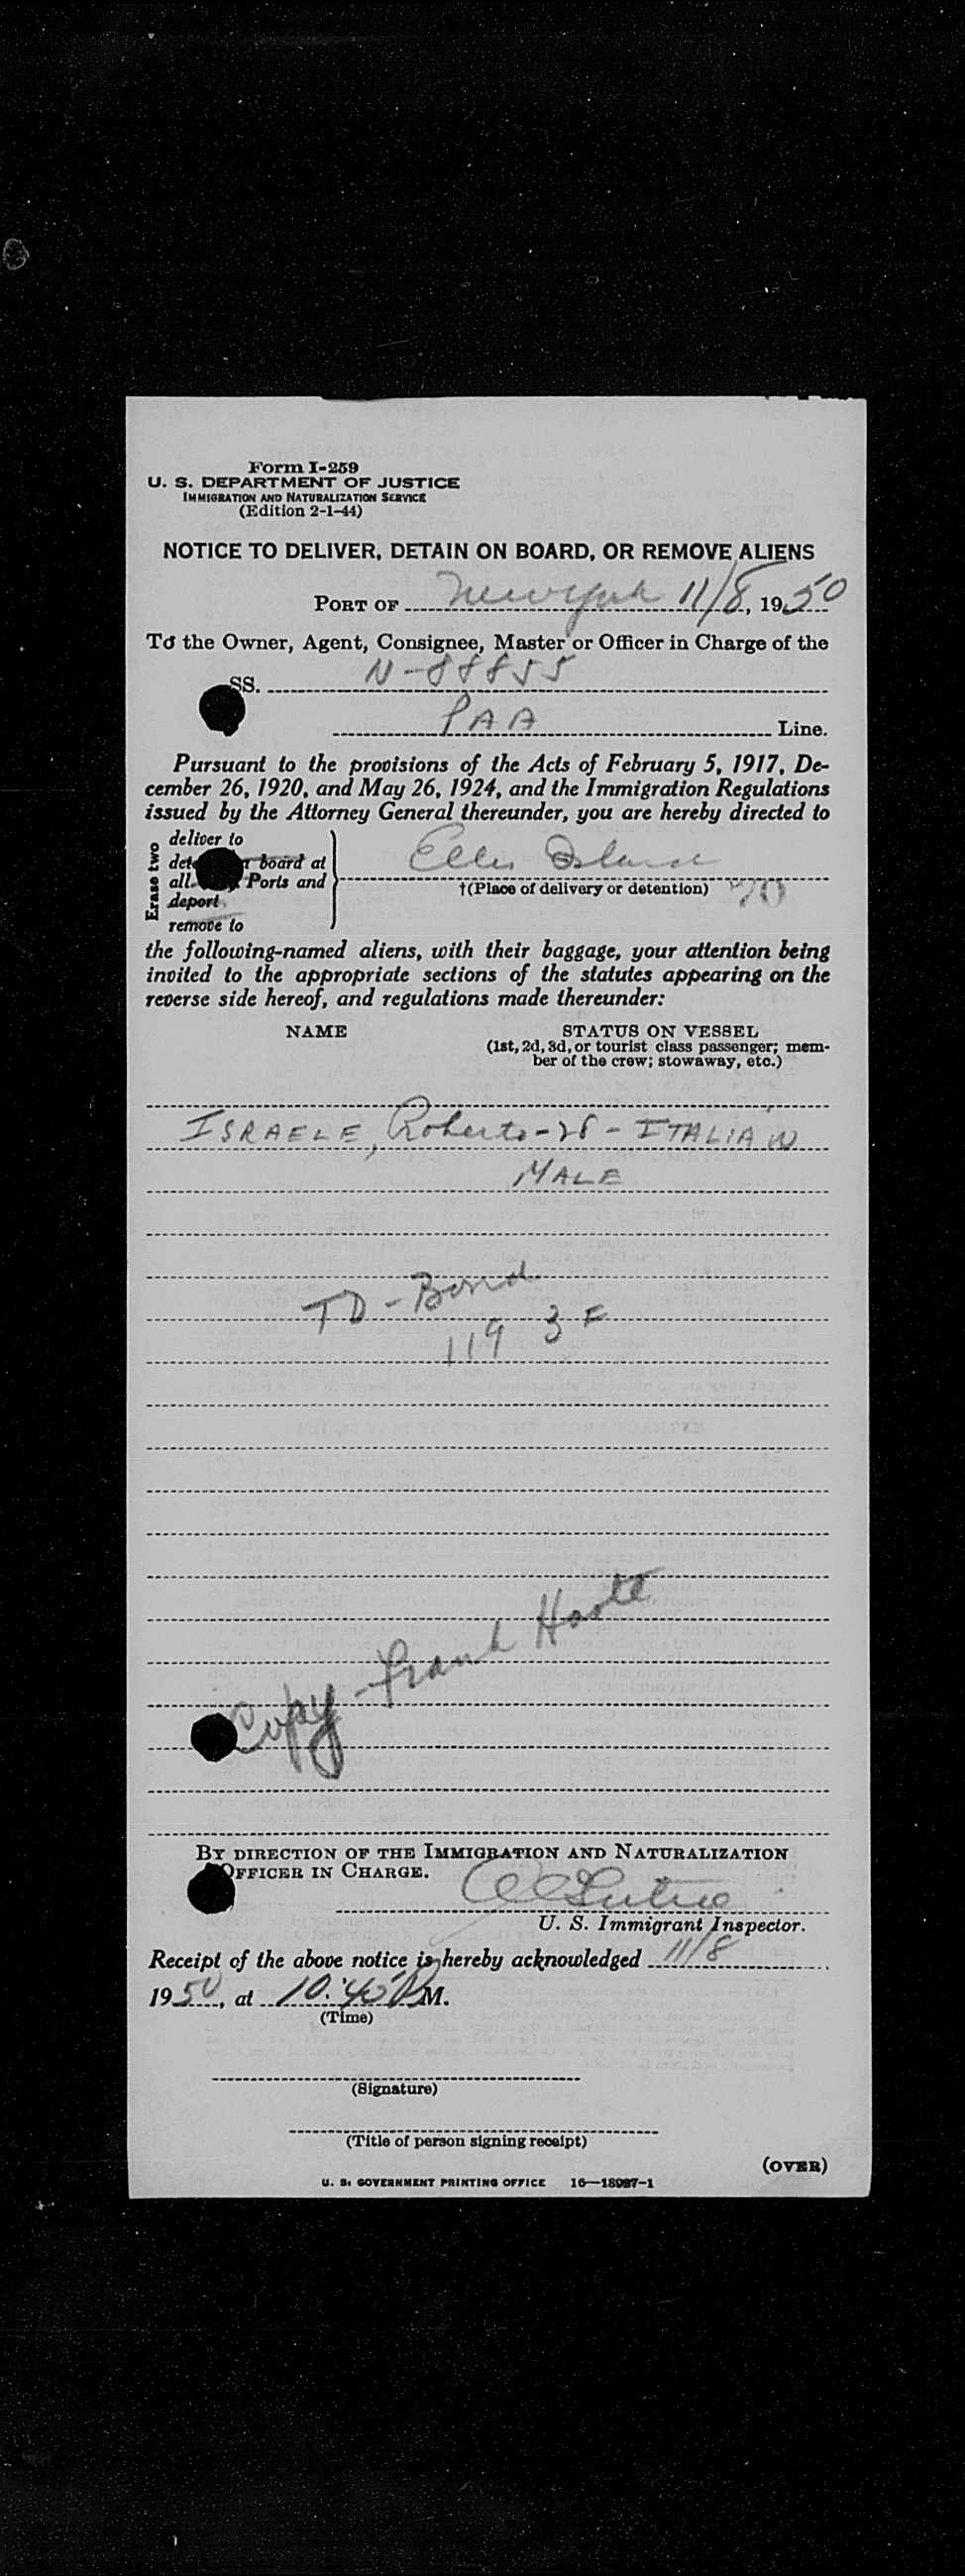 Form I-259
U. S. DEPARTMENT OF JUSTICE
IMMIGRATION AND NATURALIZATION SERVICE
(Edition 2-1-44)
NOTICE TO DELIVER, DETAIN ON BOARD, OR REMOVE ALIENS
PORT OF New York 11/8, 1950
To the Owner, Agent, Consignee, Master or Officer in Charge of the
SS. N-88855
PAA Line.
Pursuant to the provisions of the Acts of February 5, 1917, De-
cember 26, 1920, and May 26, 1924, and the Immigration Regulations
issued by the Attorney General thereunder, you are hereby directed to
Erase two
deliver to
board at
all Ports and
deport
remove to
Ellis Island
†(Place of delivery or detention) 70
the following-named aliens, with their baggage, your attention being
invited to the appropriate sections of the statutes appearing on the
reverse side hereof, and regulations made thereunder:
NAME STATUS ON VESSEL
(1st, 2d, 3d, or tourist class passenger; mem-
ber of the crew; stowaway, etc.)
ISRAELE, Roberto - 28 - ITALIAN
MALE
TD - Bond
119 3 F
Copy - Frank
BY DIRECTION OF THE IMMIGRATION AND NATURALIZATION
OFFICER IN CHARGE.
U. S. Immigrant Inspector.
Receipt of the above notice is hereby acknowledged 11/8
1950, at 10:45 P M.
(Time)
(Signature)
(Title of person signing receipt)
(OVER)
U. S. GOVERNMENT PRINTING OFFICE 16—18087-1